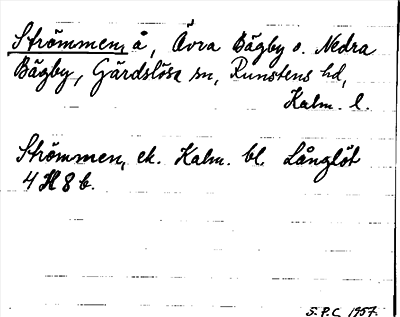 Strömmen, å, Övra Bägby o. Nedra
Bägby, Gärdslösa sn, Runstens hd,
Kalm. l.
Strömmen, ek. Kalm. bl. Långlöt
4 H 8 b.
S.P.C. 1957.